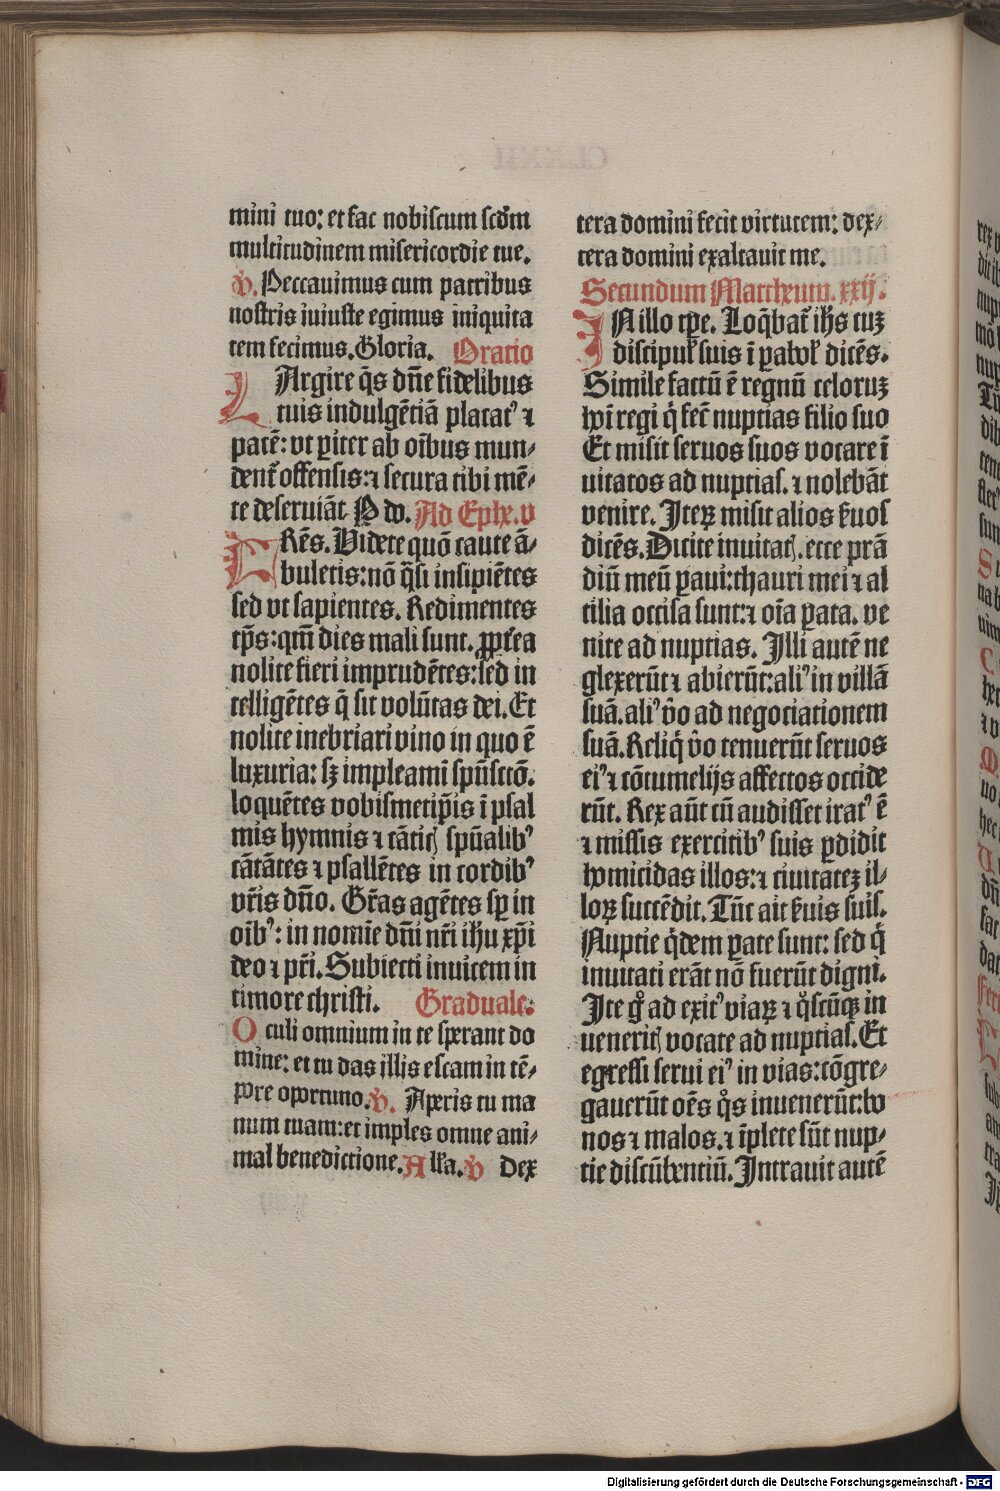 mini tuo: et fac nobiscum scd̄m
multitudinem misericordie tue.
℣. Peccauimus cum patribus
nostris iniuste egimus iniquita
tem fecimus. Gloria. Oratio
LArgire q̄s dn̄e fidelibus
tuis indulgētiā placatꝰ ⁊
pacē: vt ꝑiter ab oībus mun⸗
dent᷑ offensis: ⁊ secura tibi mē⸗
te deseruiāt. P do. Ad Ephe. v
FRēs. Videte quō caute ā⸗
buletis: nō q̄si insipiētes
sed vt sapientes. Redimentes
tp̄s: qm̄ dies mali sunt. ꝓpt̄ea
nolite fieri imprudētes: sed in
telligētes q̄ sit volūtas dei. Et
nolite inebriari vino in quo ē
luxuria: sꝫ impleami spū sctō.
loquētes vobismetip̄is ī psal
mis hymnis ⁊ cātic̄ spūalibꝰ
cātātes ⁊ psallētes in cordibꝰ
vr̄is dn̄o. Gr̄as agētes sp̄ in
oībꝰ: in nomīe dn̄i nr̄i ihū xp̄i
deo ⁊ pr̄i. Subiecti inuicem in
timore christi. Graduale.
Oculi omnium in te sperant do
mine: et tu das illis escam in tē⸗
pore oportuno. ℣. Aperis tu ma
num tuam: et imples omne ani⸗
mal benedictione. Alla. ℣ Dex
tera domini fecit virtutem: dex⸗
tera domini exaltauit me.
Secundum Mattheum. xxij.
IN illo tp̄e. Loq̄bat᷑ ihs cuꝫ
discipuł suis ī paboł dicēs.
Simile factū ē regnū celoruꝫ
hoī regi q̄ fec̄ nuptias filio suo
Et misit seruos suos vocare ī
uitatos ad nuptias. ⁊ nolebāt
venire. Iteꝝ misit alios ẜuos
dicēs. Dicite inuitatꝭ. ecce prā
diū meū ꝑaui: thauri mei ⁊ al
tilia occisa sunt: ⁊ oīa ꝑata. ve
nite ad nuptias. Illi autē ne
glexerūt ⁊ abierūt: aliꝰ in villā
suā. aliꝰ v̄o ad negociationem
suā. Reliq̄ v̄o tenuerūt seruos
eiꝰ ⁊ cōtumelijs affectos occide
rūt. Rex aūt cū audisset iratꝰ ē
⁊ missis exercitibꝰ suis ꝑdidit
homicidas illos: ⁊ ciuitateꝫ il⸗
loꝝ succēdit. Tūc ait ẜuis suis.
Nuptie q̄dem ꝑate sunt: sed q̄
inuitati erāt nō fuerūt digni.
Ite gͦ ad exitꝰ viaꝝ ⁊ qͦscūqꝫ in
ueneritꝭ vocate ad nuptias. Et
egressi serui eiꝰ in vias: cōgre⸗
gauerūt oēs qͦs inuenerūt: bo
nos ⁊ malos. ⁊ īplete sūt nup⸗
tie discūbentiū. Intrauit autē
Digitalisierung gefördert durch die Deutsche Forschungsgemeinschaft - DFG